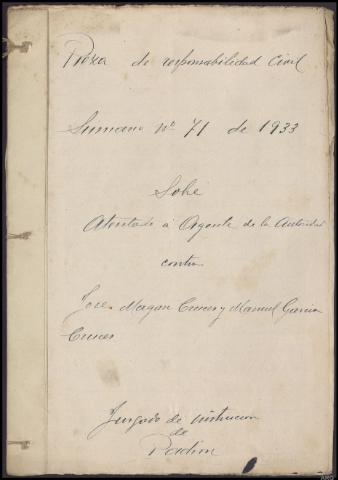 Pieza de responsabilidad Civil
Sumario nº 71 de 1933
Sobre
Atentado á Agente de la Autoridad
contra
Jose Magan Cruces y Manuel Garcia
Cruces
Juzgado de instruccion
de